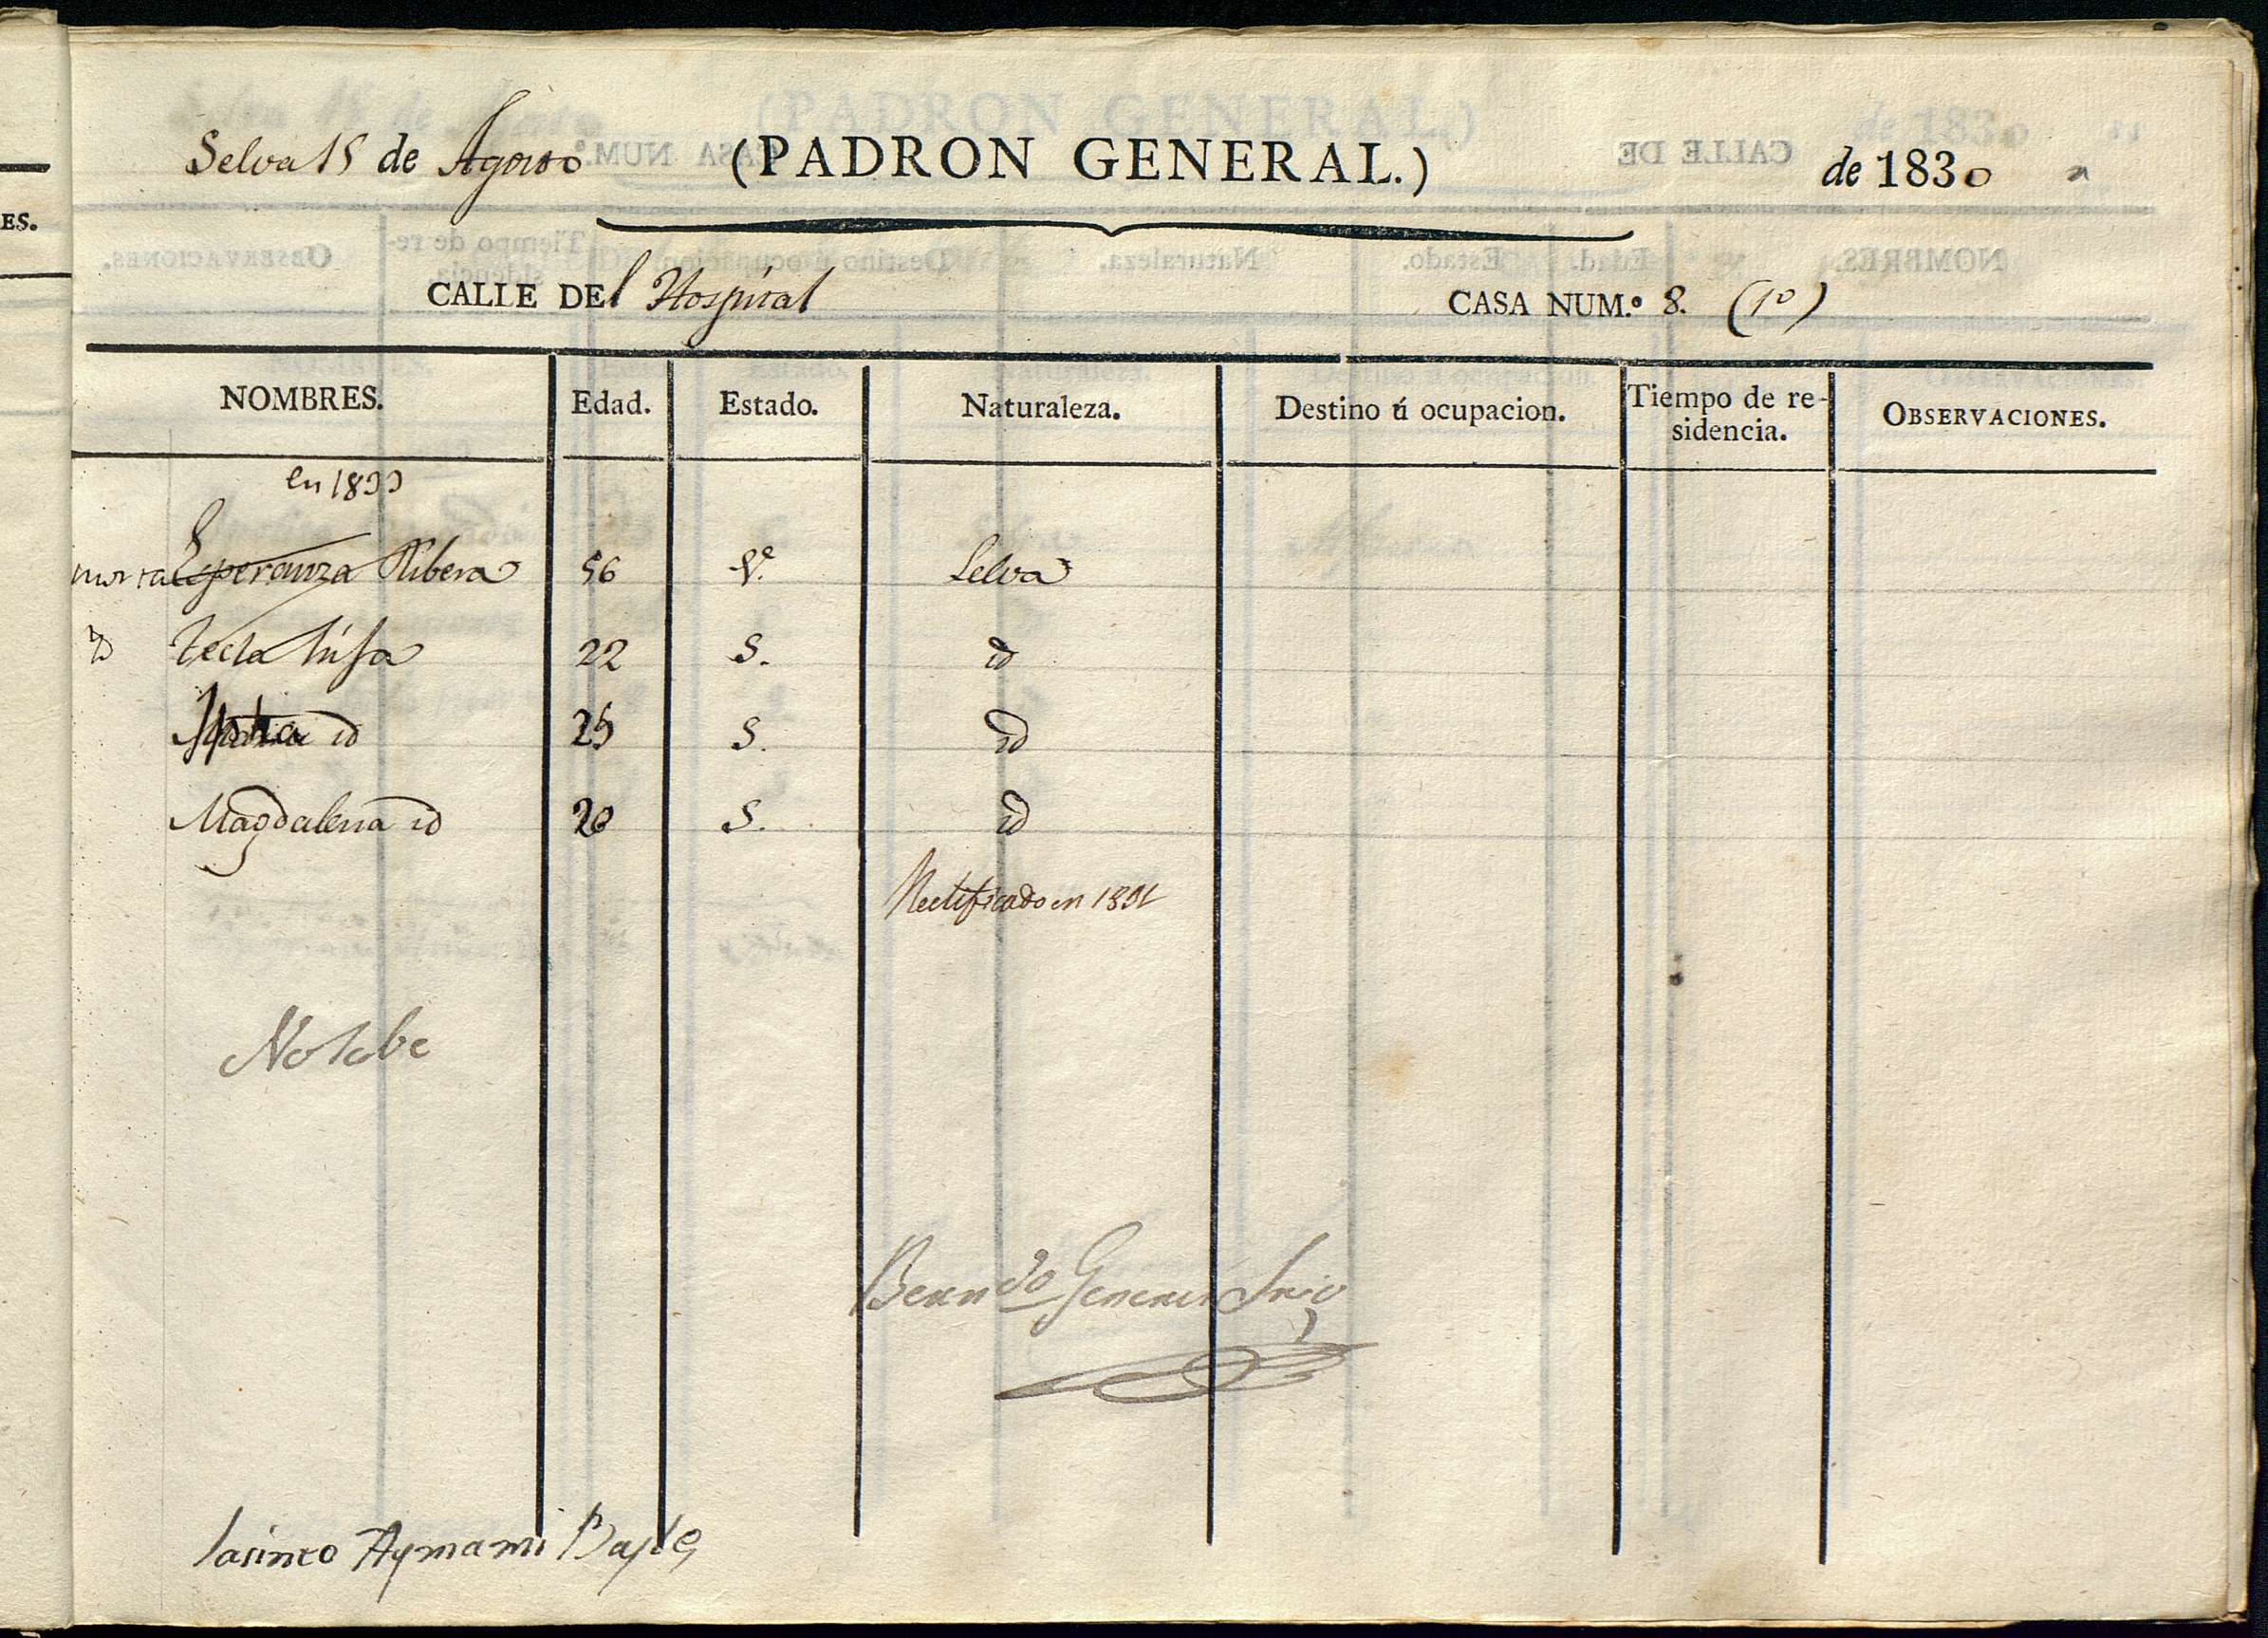 ES.
Selva 15 de Agosto (PADRON GENERAL.) de 1830
CALLE DEl Hospital CASA NUM.º 8. (1º)
NOMBRES. Edad. Estado. Naturaleza. Destino ú ocupacion. Tiempo de re-
sidencia. OBSERVACIONES.
en 1833
Esperanza Ribera 56 Vª Selva
id Tecla 22 S. id
id 25 S. id
Magdalena id 20 S. id
Rectificado en 1831
No sabe
Berndo Srio
Jasinto Aymami Bayle